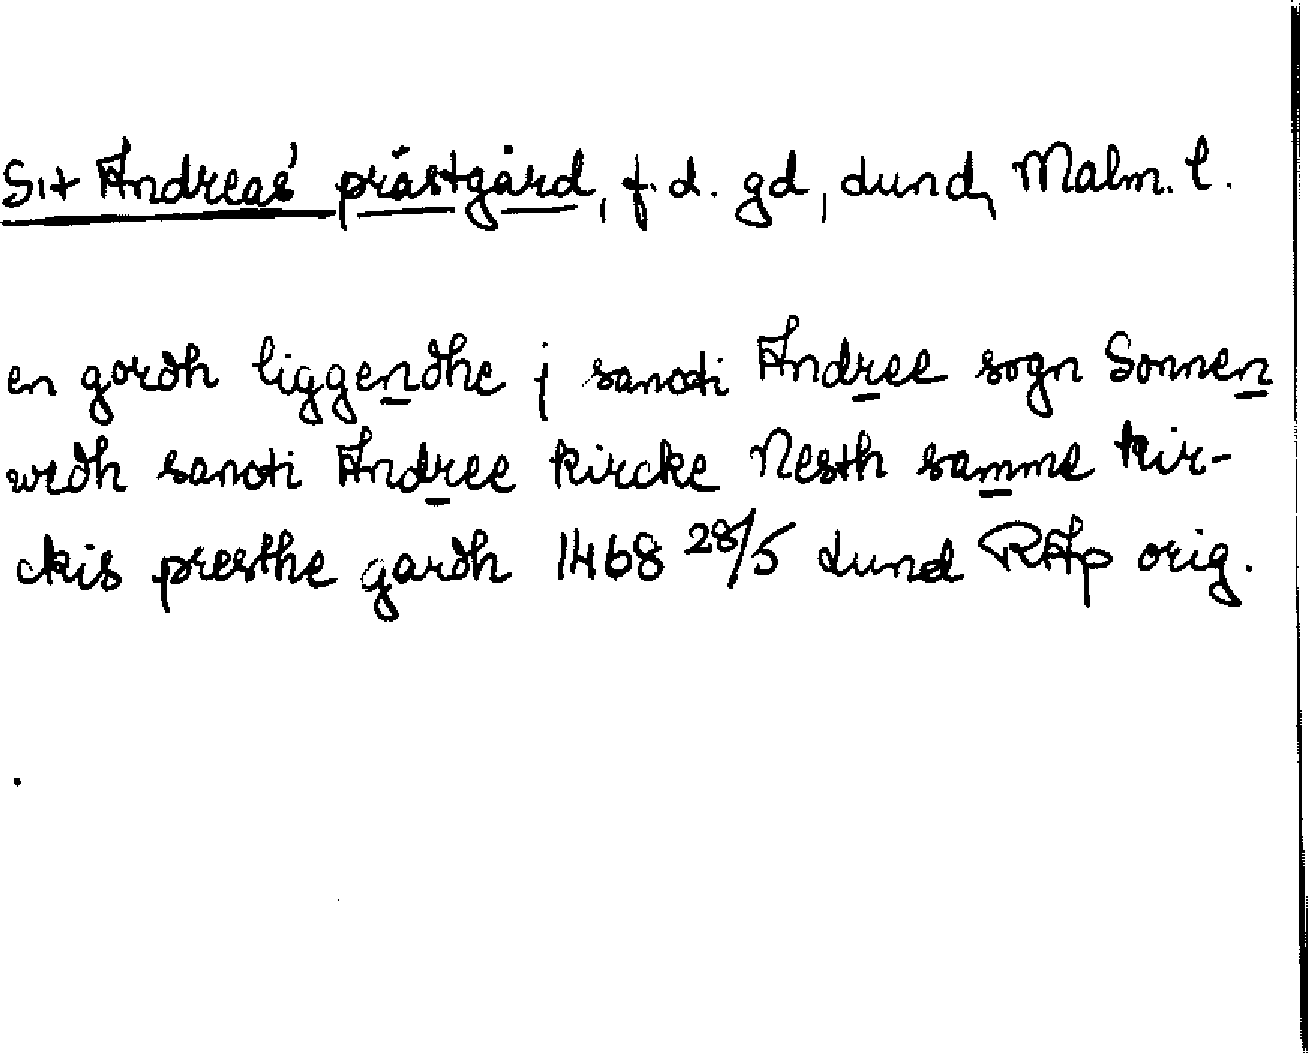 S:t Andreas' prästgård, f.d. gd, Lund, Malm. l.
en gordh liggendhe j sancti Andree sogn Sonnen
wedh sancti Andree kircke Nesth samme kir-
ckis presthe gardh 1468 28/5 Lund RAp orig.